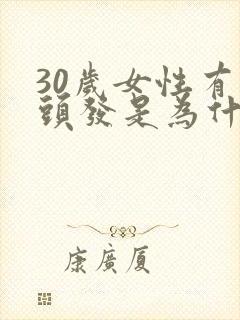 30歲女性有
頭發是為什
康廣厦